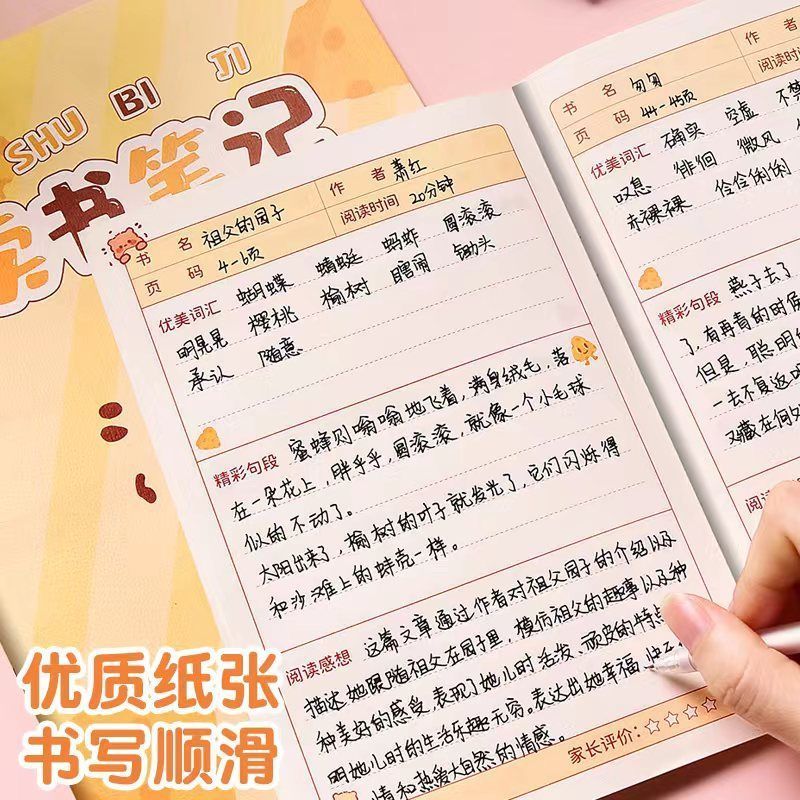 SHU BI JI
读书笔记
书 名 祖父的园子
作 者 萧红
页 码 4-6页
阅读时间 20分钟
优美词汇 蝴蝶 蜻蜓 蚂蚱 圆滚滚
明晃晃 樱桃 榆树 瞎闹 锄头
承认 随意
精彩句段 蜜蜂则嗡嗡地飞着,满身绒毛,落
在一朵花上,胖乎乎,圆滚滚,就像一个小毛球
似的不动了。
太阳出来了,榆树的叶子就发光了,它们闪烁得
和沙滩上的蚌壳一样。
阅读感想 这篇文章通过作者对祖父园子的介绍以及
描述她跟随祖父在园子里,模仿祖父的趣事以及种
种美好的感受,表现了她儿时活发、顽皮的特点
明她儿时的生活乐趣无穷。表达出她幸福
情和热爱大自然的情感。
家长评价:
书 名 匆匆
作 者
页 码 44-45页
阅读时
优美词汇 确实 空虚 不禁
叹息 徘徊 微风
赤裸裸 伶伶俐俐
精彩句段 燕子去了
了,有再青的时
但是,聪明的
一去不复返
又藏在何
阅读
优质纸张
书写顺滑